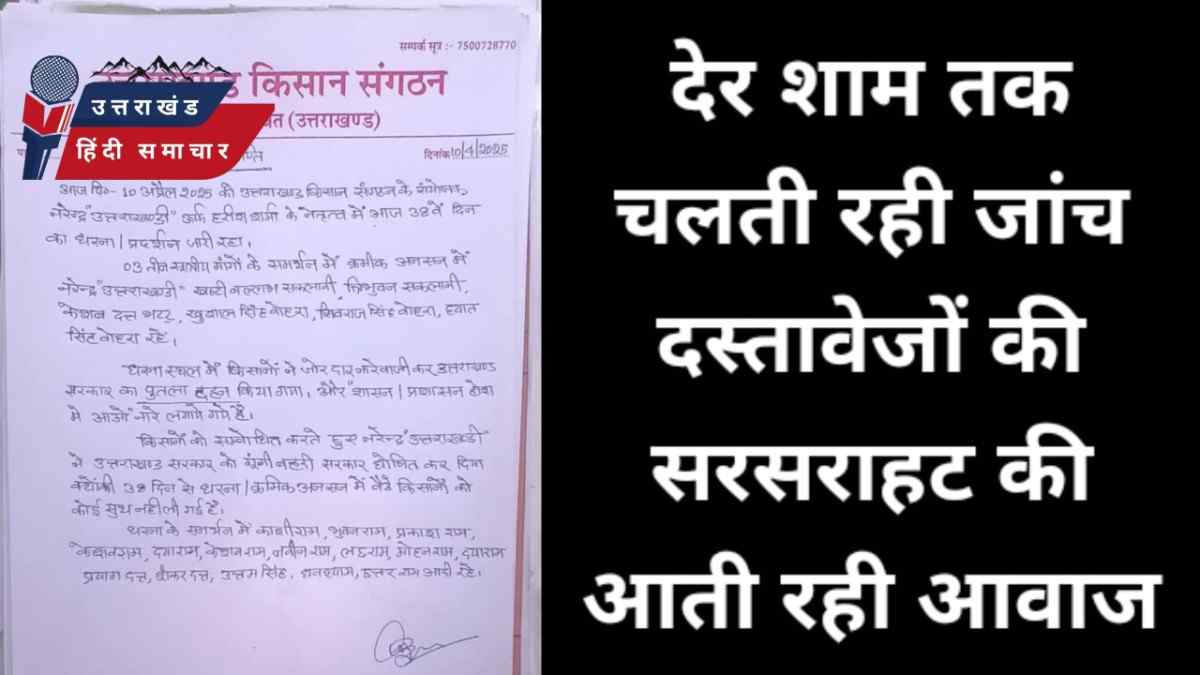 सम्पर्क सूत्र :- 7500728770
किसान संगठन
(उत्तराखण्ड)
उत्तराखंड
हिंदी समाचार
दिनांक 10/4/2025
आज दि०- 10 अप्रैल 2025 को उत्तराखण्ड किसान संगठन के संयोजक
नरेन्द्र "उत्तराखण्डी" उर्फ हरीश शर्मा के नेतृत्व में आज 38वें दिन
का धरना / प्रदर्शन जारी रहा।
03 तीन स्थानीय मांगों के समर्थन में क्रमीक अनसन में
नरेन्द्र "उत्तराखण्डी" सकलानी, त्रिभुवन सकलानी,
केशव दत्त भट्ट, खुशाल सिंह बोहरा, शिवराज सिंह बोहरा, हयात
सिंह बोहरा रहे।
धरना स्थल में किसानों ने जोर दार नारेबाजी कर उत्तराखण्ड
सरकार का पुतला दहन किया गया। और "शासन / प्रशासन होश
में आओ" नारे लगाये गये है।
किसानों को सम्बोधित करते हुए नरेन्द्र "उत्तराखण्डी"
ने उत्तराखण्ड सरकार को गूंगी बहरी सरकार घोषित कर दिया
क्योंकी 38 दिन से धरना / क्रमिक अनसन में बैठे किसानों की
कोई सुध नहीं ली गई है।
धरना के समर्थन में काशीराम, भुवन राम, प्रकाश राम,
केशवराम, दयाराम, केशव राम, नवीन राम, मोहन राम, दयाराम
प्रयाग दत्त, दत्त, उत्तम सिंह, घनश्याम, राम आदी रहे।
देर शाम तक
चलती रही जांच
दस्तावेजों की
सरसराहट की
आती रही आवाज